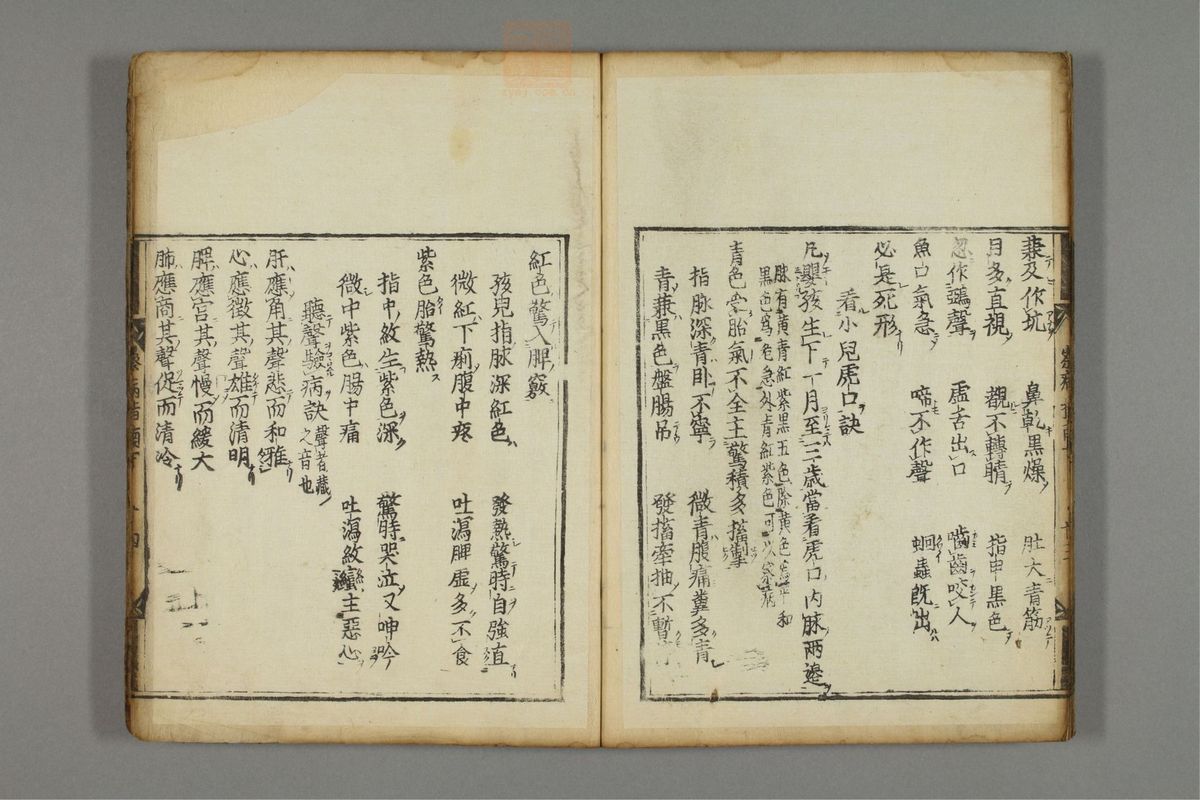 兼及作坑 鼻乾黒燥 肚大青筋
目多直視 覩不轉睛 指甲黒色
忽作鵶聲 虚舌出口 嚙齒咬人
魚口氣急 啼不作聲 蛔蟲既出
必是死形
看小兒虎口訣
凡嬰孩生下一月至三歳當看虎口内脉兩邊
脉有黄青紅紫黒五色除黄色為平和
黒色為危急外青紅紫色可以察病
青色氣不全主驚積多搐掣
指脉深青卧不寧 微青腹痛糞多青
青兼黒色盤腸吊 發搐牽抽不暫
紅色驚入脾竅
孩兒指脉深紅色 發熱驚時自強直
微紅下痢腹中疼 吐瀉脾虚多不食
紫色胎驚熱
指中紋生紫色深 驚時哭泣又呻吟
微中紫色腸中痛 吐瀉紋主惡心
聽聲驗病訣 聲者藏之音也
肝應角其聲悲而和雅
心應徴其聲雄而清明
脾應宮其聲慢而緩大
肺應商其聲促而清冷